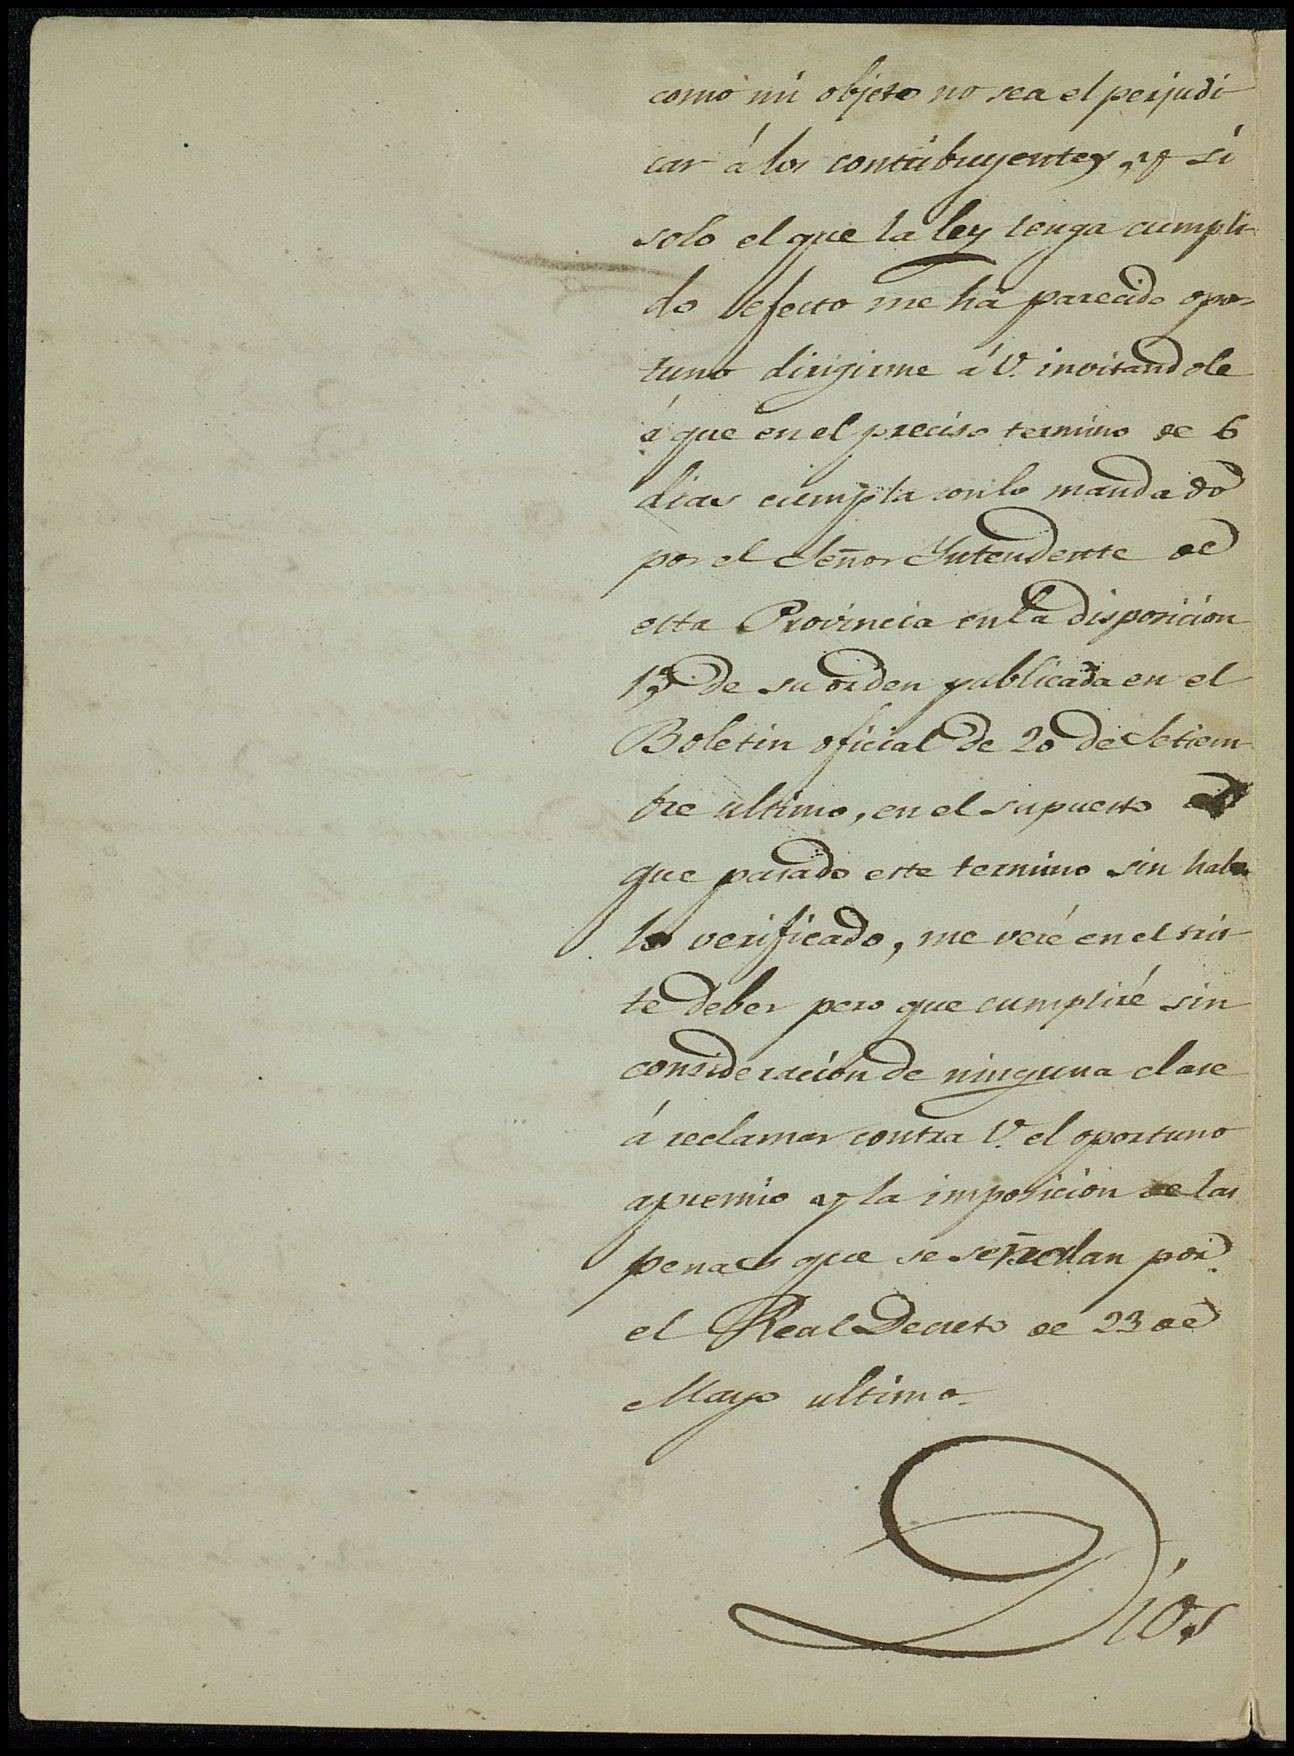 como mi objeto no sea el perjudi
car á los contribuyentes, y si
solo el que la ley tenga cumpli-
do efecto me ha parecido opor-
tuno dirigirme á V. invitandole
á que en el preciso termino de 6
dias cumpla con lo mandado
por el Señor Yntendente de
esta Provincia en la disposicion
1ª de su orden publicada en el
Boletin oficial de 20 de Setiem-
bre ultimo, en el supuesto de
que pasado este termino sin haber
lo verificado, me veré en el tris
te deber pero que cumpliré sin
consideracion de ninguna clase
á reclamar contra V. el oportuno
apremio y la imposicion de las
penas que se señalan por
el Real Decreto de 23 de
Mayo ultimo.
Dios